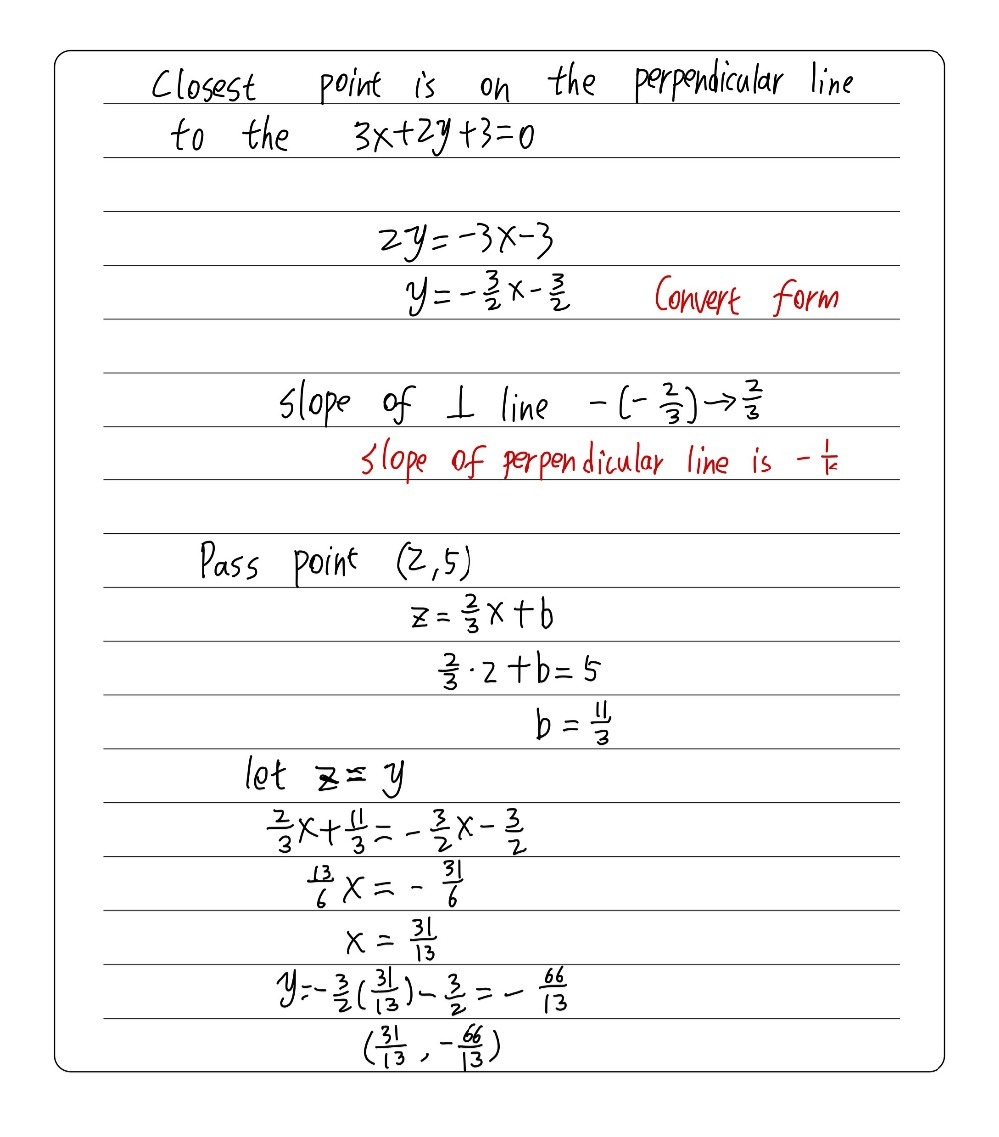 Closest point is on the perpendicular line
to the 3x+2y+3=0
2y=-3x-3
y=-3/2x-3/2 Convert form
slope of ⊥ line -(-2/3)→2/3
slope of perpendicular line is -1/k
Pass point (2,5)
z=2/3x+b
2/3·2+b=5
b=11/3
let z=y
2/3x+11/3=-3/2x-3/2
13/6x=-31/6
x=31/13
y=-3/2(31/13)-3/2=-66/13
(31/13,-66/13)